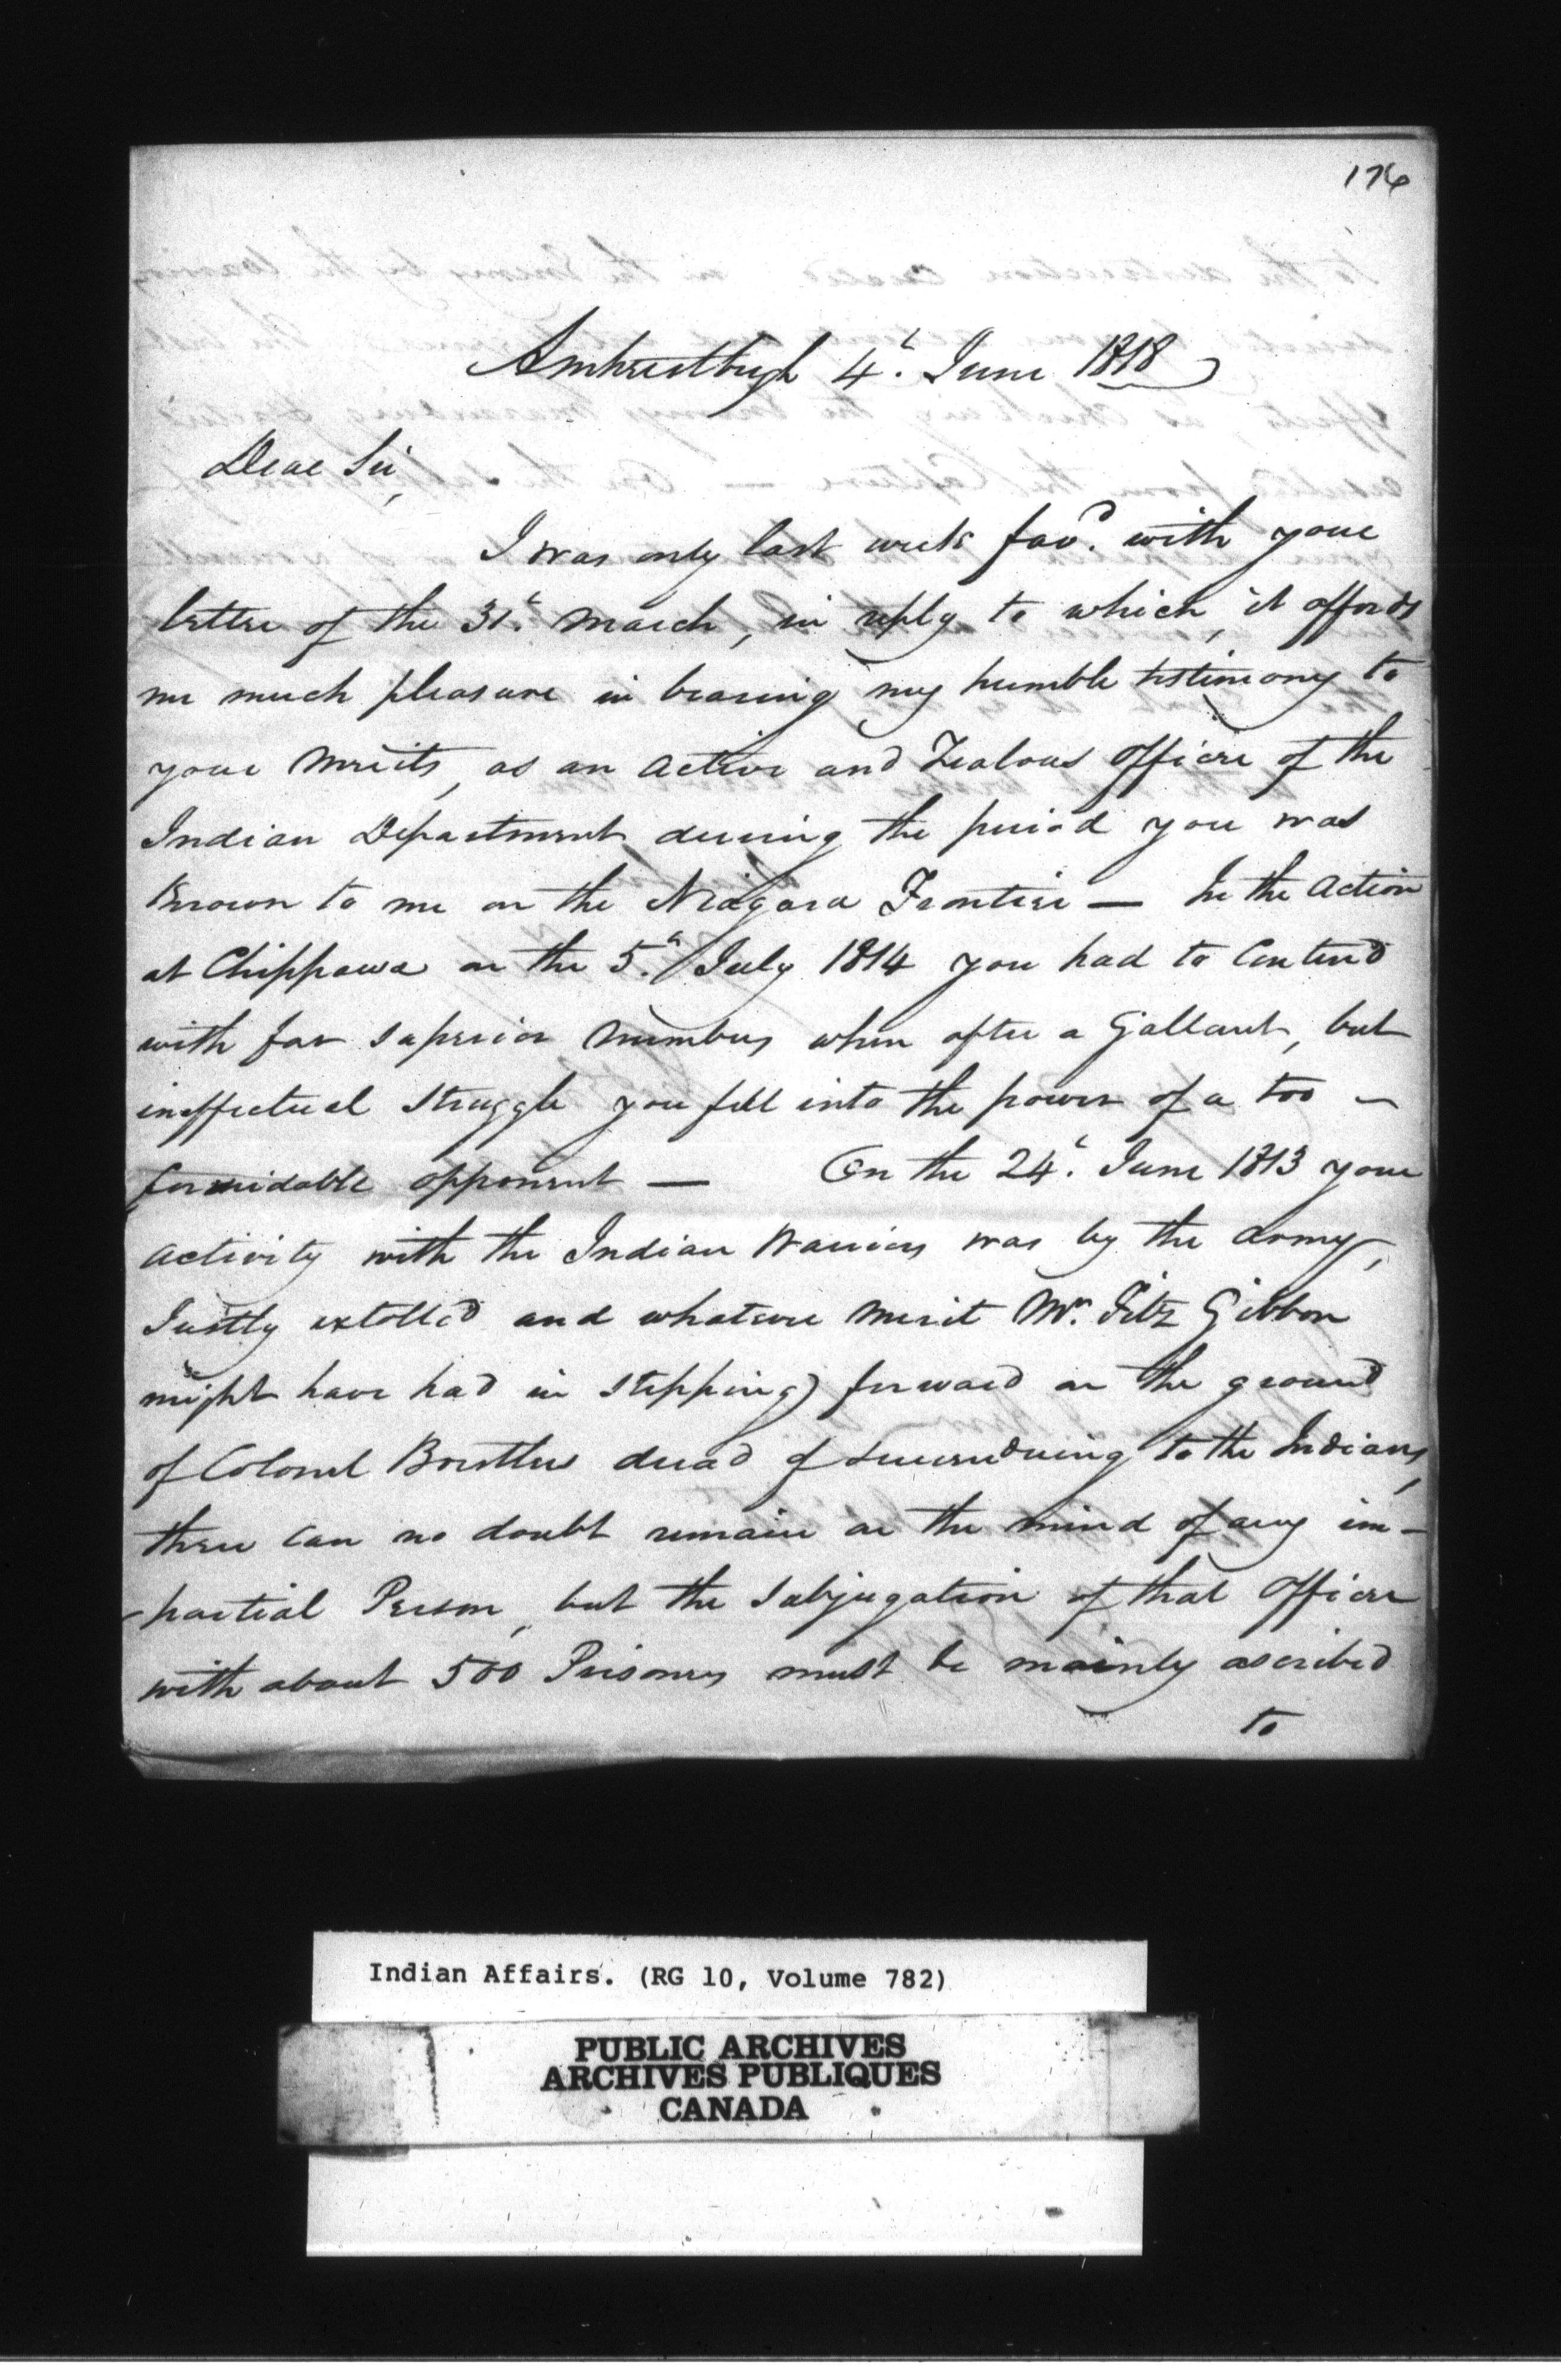 176
Amherstburgh 4th. June 1818
Dear Sir,
I was only last week fav.d with your
letter of the 31t. March, in reply to which, it affords
me much pleasure in bearing my humble testimony to
your Merits, as an Active and Zealous Officer of the
Indian Department during the period you was
Known to me on the Niagara Frontier — In the Action
at Chippawa on the 5th. July 1814 you had to Contend
with far superior Numbers when after a Gallant, but
ineffectual Struggle you fell into the power of a too –
formidable opponent — On the 24th. June 1813 your
Activity with the Indian Warriors was by the Army,
Justly extolled and whatever Merit Mr. Fitz Gibbon
might have had in stepping forward on the ground
of Colonel Boerstlers dread of surrendering to the Indians,
there Can no doubt remain on the mind of any im-
-partial Person, but the Subjugation of that Officer
with about 500 Prisoners must be mainly ascribed
to
Indian Affairs. (RG 10, Volume 782)
PUBLIC ARCHIVES
ARCHIVES PUBLIQUES
CANADA